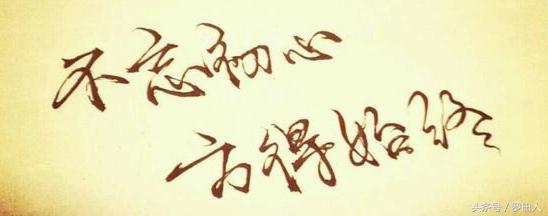 不忘初心
方得始终
头条号/罗田人